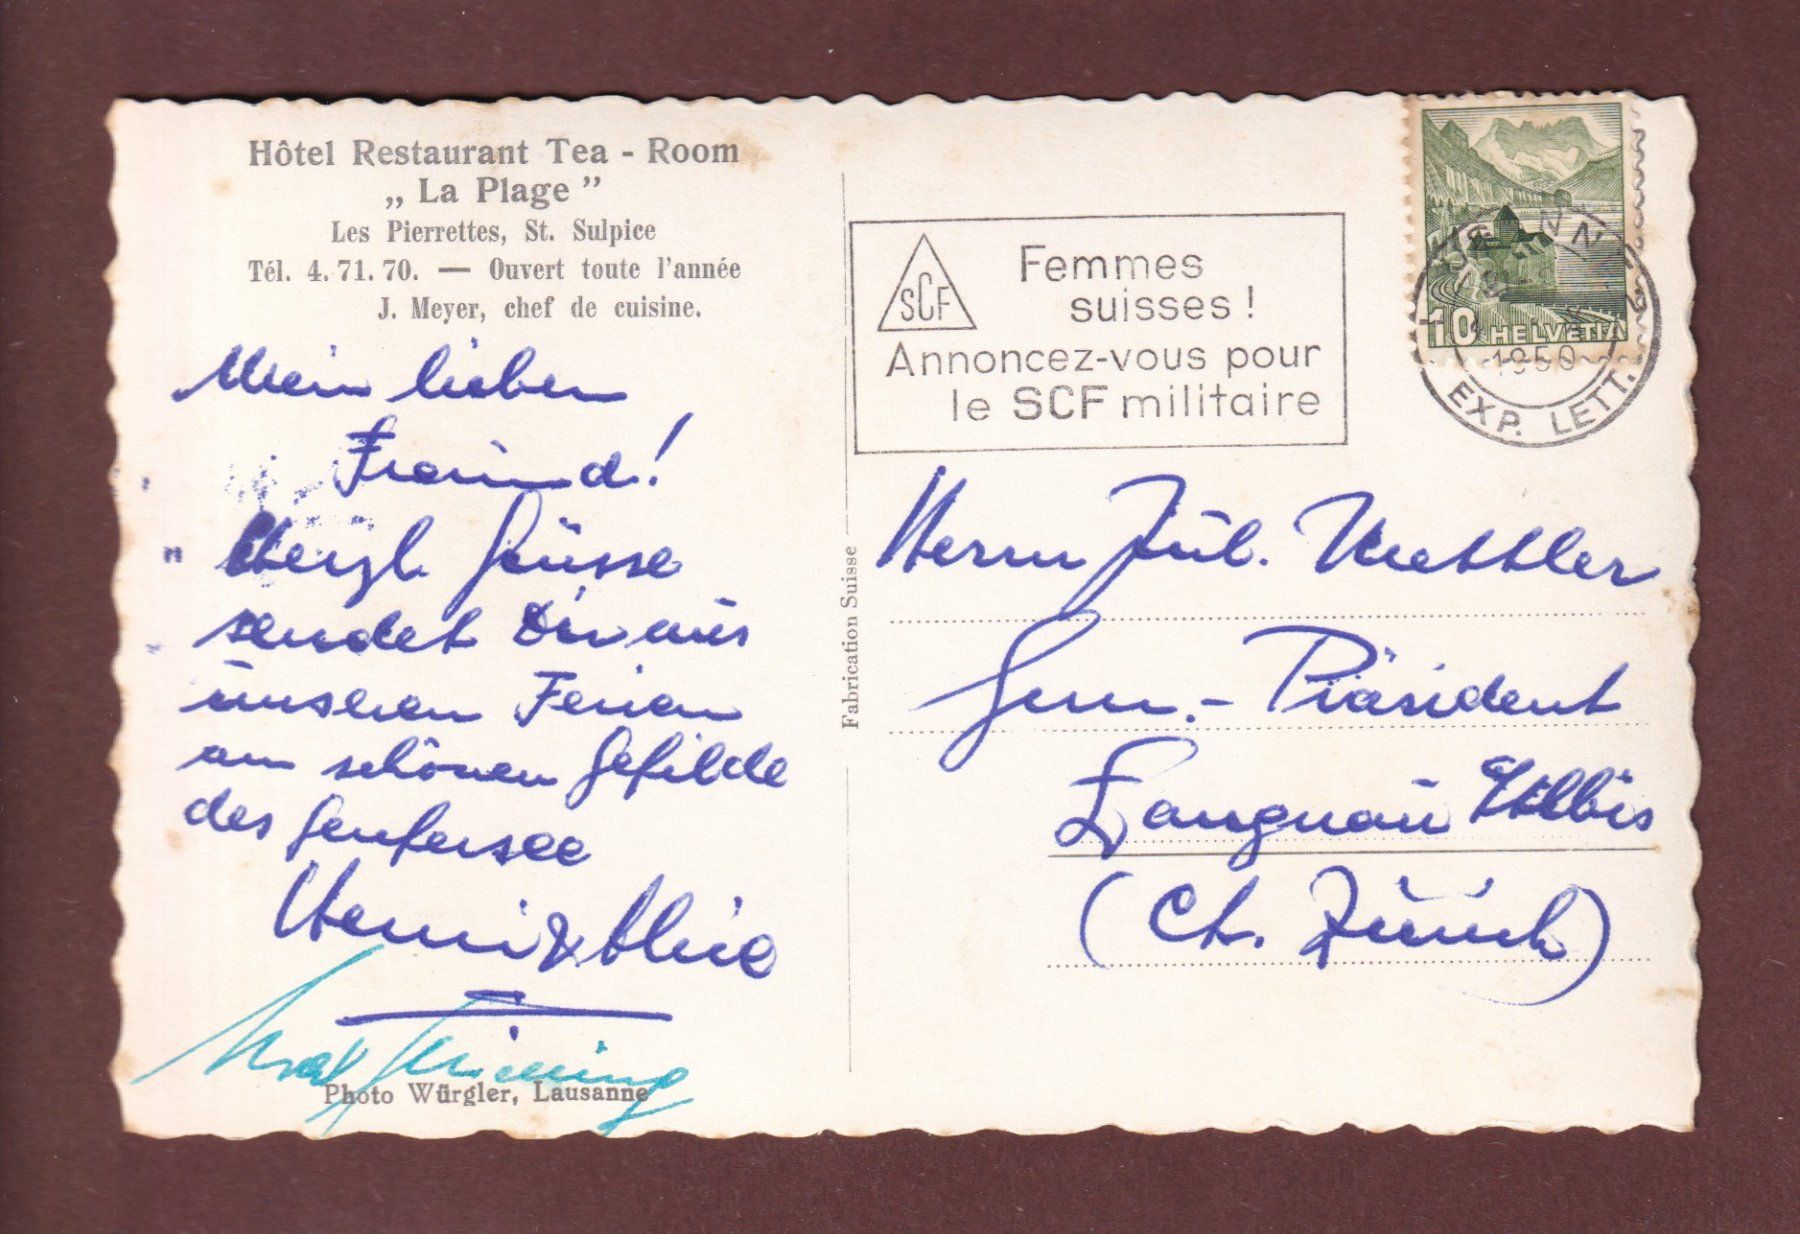 Hôtel Restaurant Tea - Room
„ La Plage ”
Les Pierrettes, St. Sulpice
Tél. 4. 71. 70. — Ouvert toute l'année
J. Meyer, chef de cuisine.
Mein lieben
Freund!
Herzl. Grüsse
sendet Dir aus
unseren Ferien
am schönen Gefilde
des Genfersee
&
Photo Würgler, Lausanne
Fabrication Suisse
SCF
Femmes
suisses !
Annoncez-vous pour
le SCF militaire
10 HELVETIA
1950
EXP. LETT.
Herrn Jul. Mettler
Gem.- Präsident
Langnau a/Albis
(Ct. Zürich)